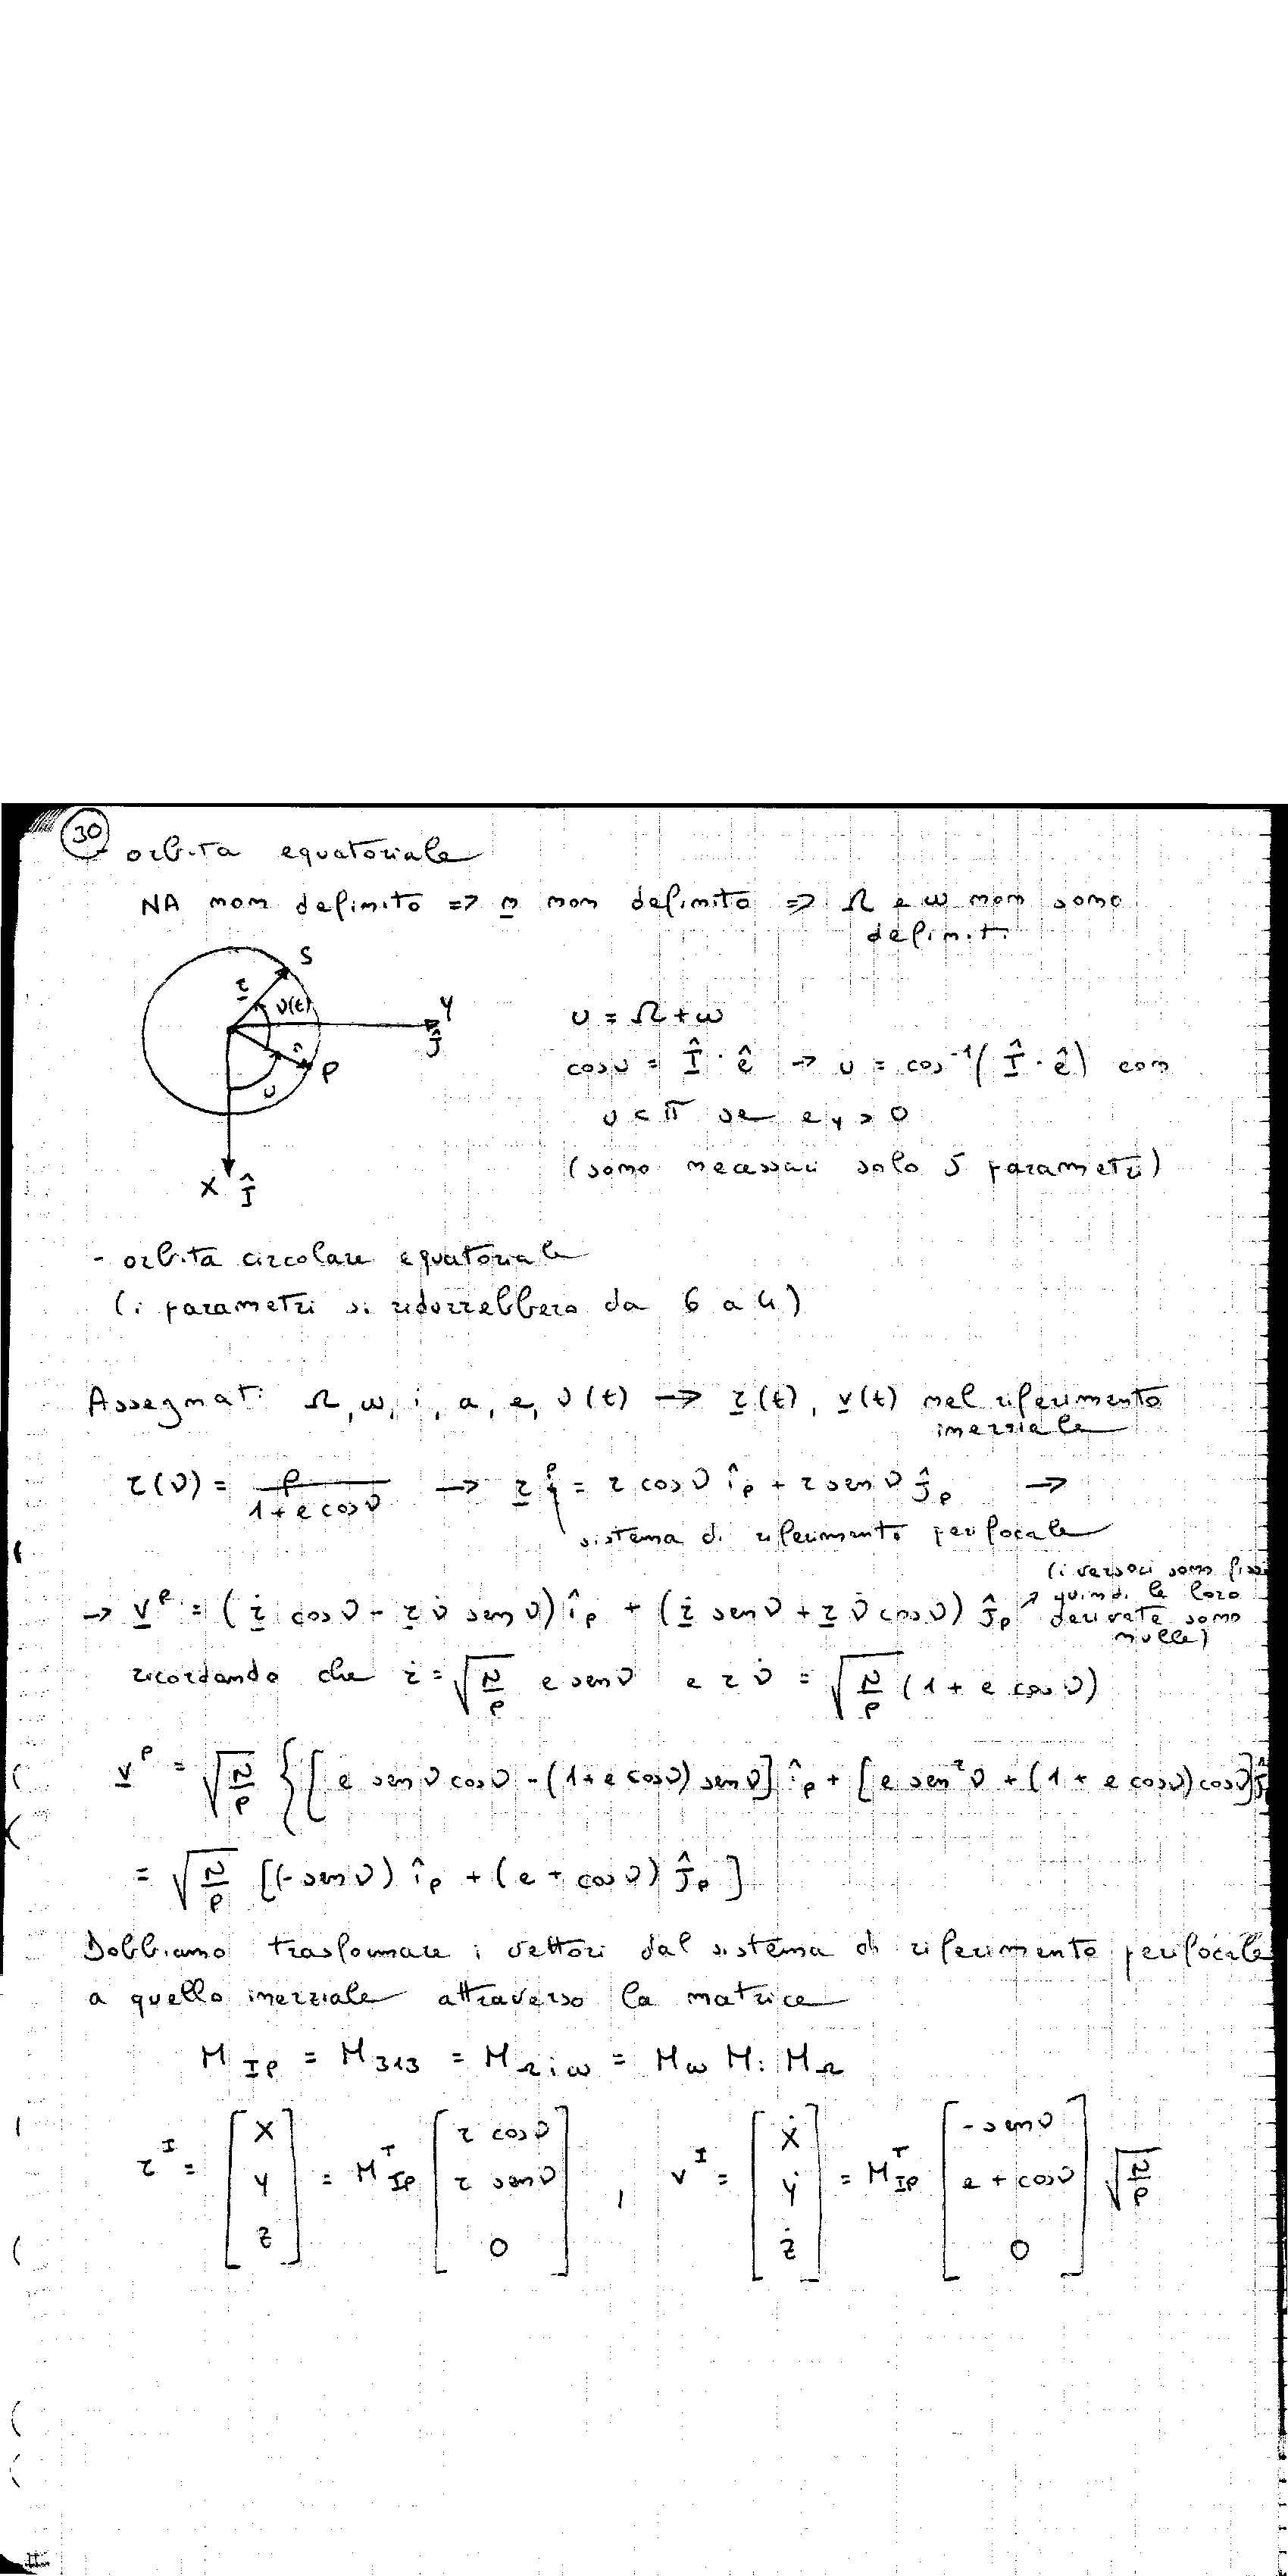 30
orbita equatoriale
NA non definito => n non definito => Ω e ω non sono
definiti
S
r
ν(t)
Y
Ĵ
ê
P
υ
X Î
υ = Ω + ω
cos υ = Î · ê → υ = cos⁻¹(Î · ê) con
υ < π se e_y > 0
(sono necessari solo 5 parametri)
- orbita circolare equatoriale
(i parametri si ridurrebbero da 6 a 4)
Assegnati Ω, ω, i, a, e, ν(t) → r(t), v(t) nel riferimento
inerziale
r(ν) = p / (1 + e cos ν) → r^P = r cos ν î_p + r sen ν ĵ_p →
sistema di riferimento perifocale
(i versori sono fissi
→ v^P = (ṙ cos ν - r ν̇ sen ν) î_p + (ṙ sen ν + r ν̇ cos ν) ĵ_p ↗ quindi le loro
derivate sono
nulle)
ricordando che ṙ = √(μ/p) e sen ν e r ν̇ = √(μ/p) (1 + e cos ν)
v^P = √(μ/p) {[e sen ν cos ν - (1 + e cos ν) sen ν] î_p + [e sen² ν + (1 + e cos ν) cos ν] ĵ
= √(μ/p) [(-sen ν) î_p + (e + cos ν) ĵ_p]
Dobbiamo trasformare i vettori dal sistema di riferimento perifocale
a quello inerziale attraverso la matrice
M_IP = M_313 = M_Ωiω = M_ω M_i M_Ω
r^I = [X Y Z] = M_IP^T [r cos ν r sen ν 0] , v^I = [Ẋ Ẏ Ż] = M_IP^T [-sen ν e + cos ν 0] √(μ/p)